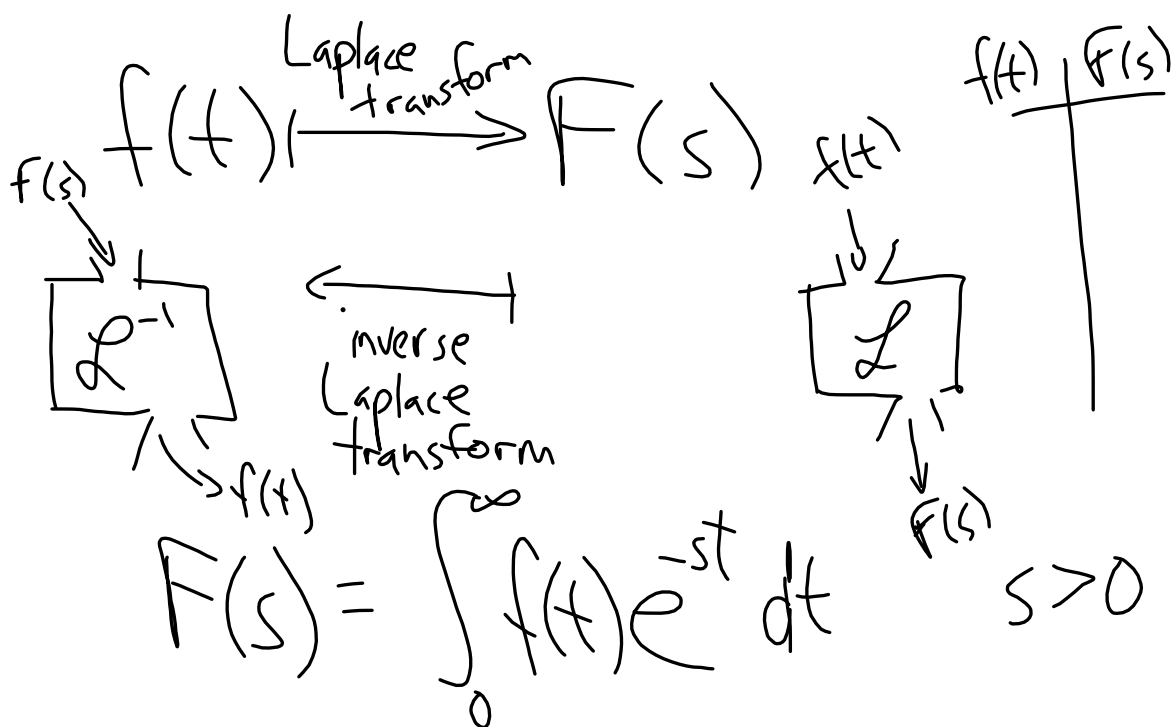 Laplace
transform
f(t) ⟼ F(s)
f(t) | F(s)
f(s)
f(t)
ℒ⁻¹
inverse
Laplace
transform
ℒ
f(t)
F(s)
F(s) = ∫₀^∞ f(t) e^{-st} dt
s > 0